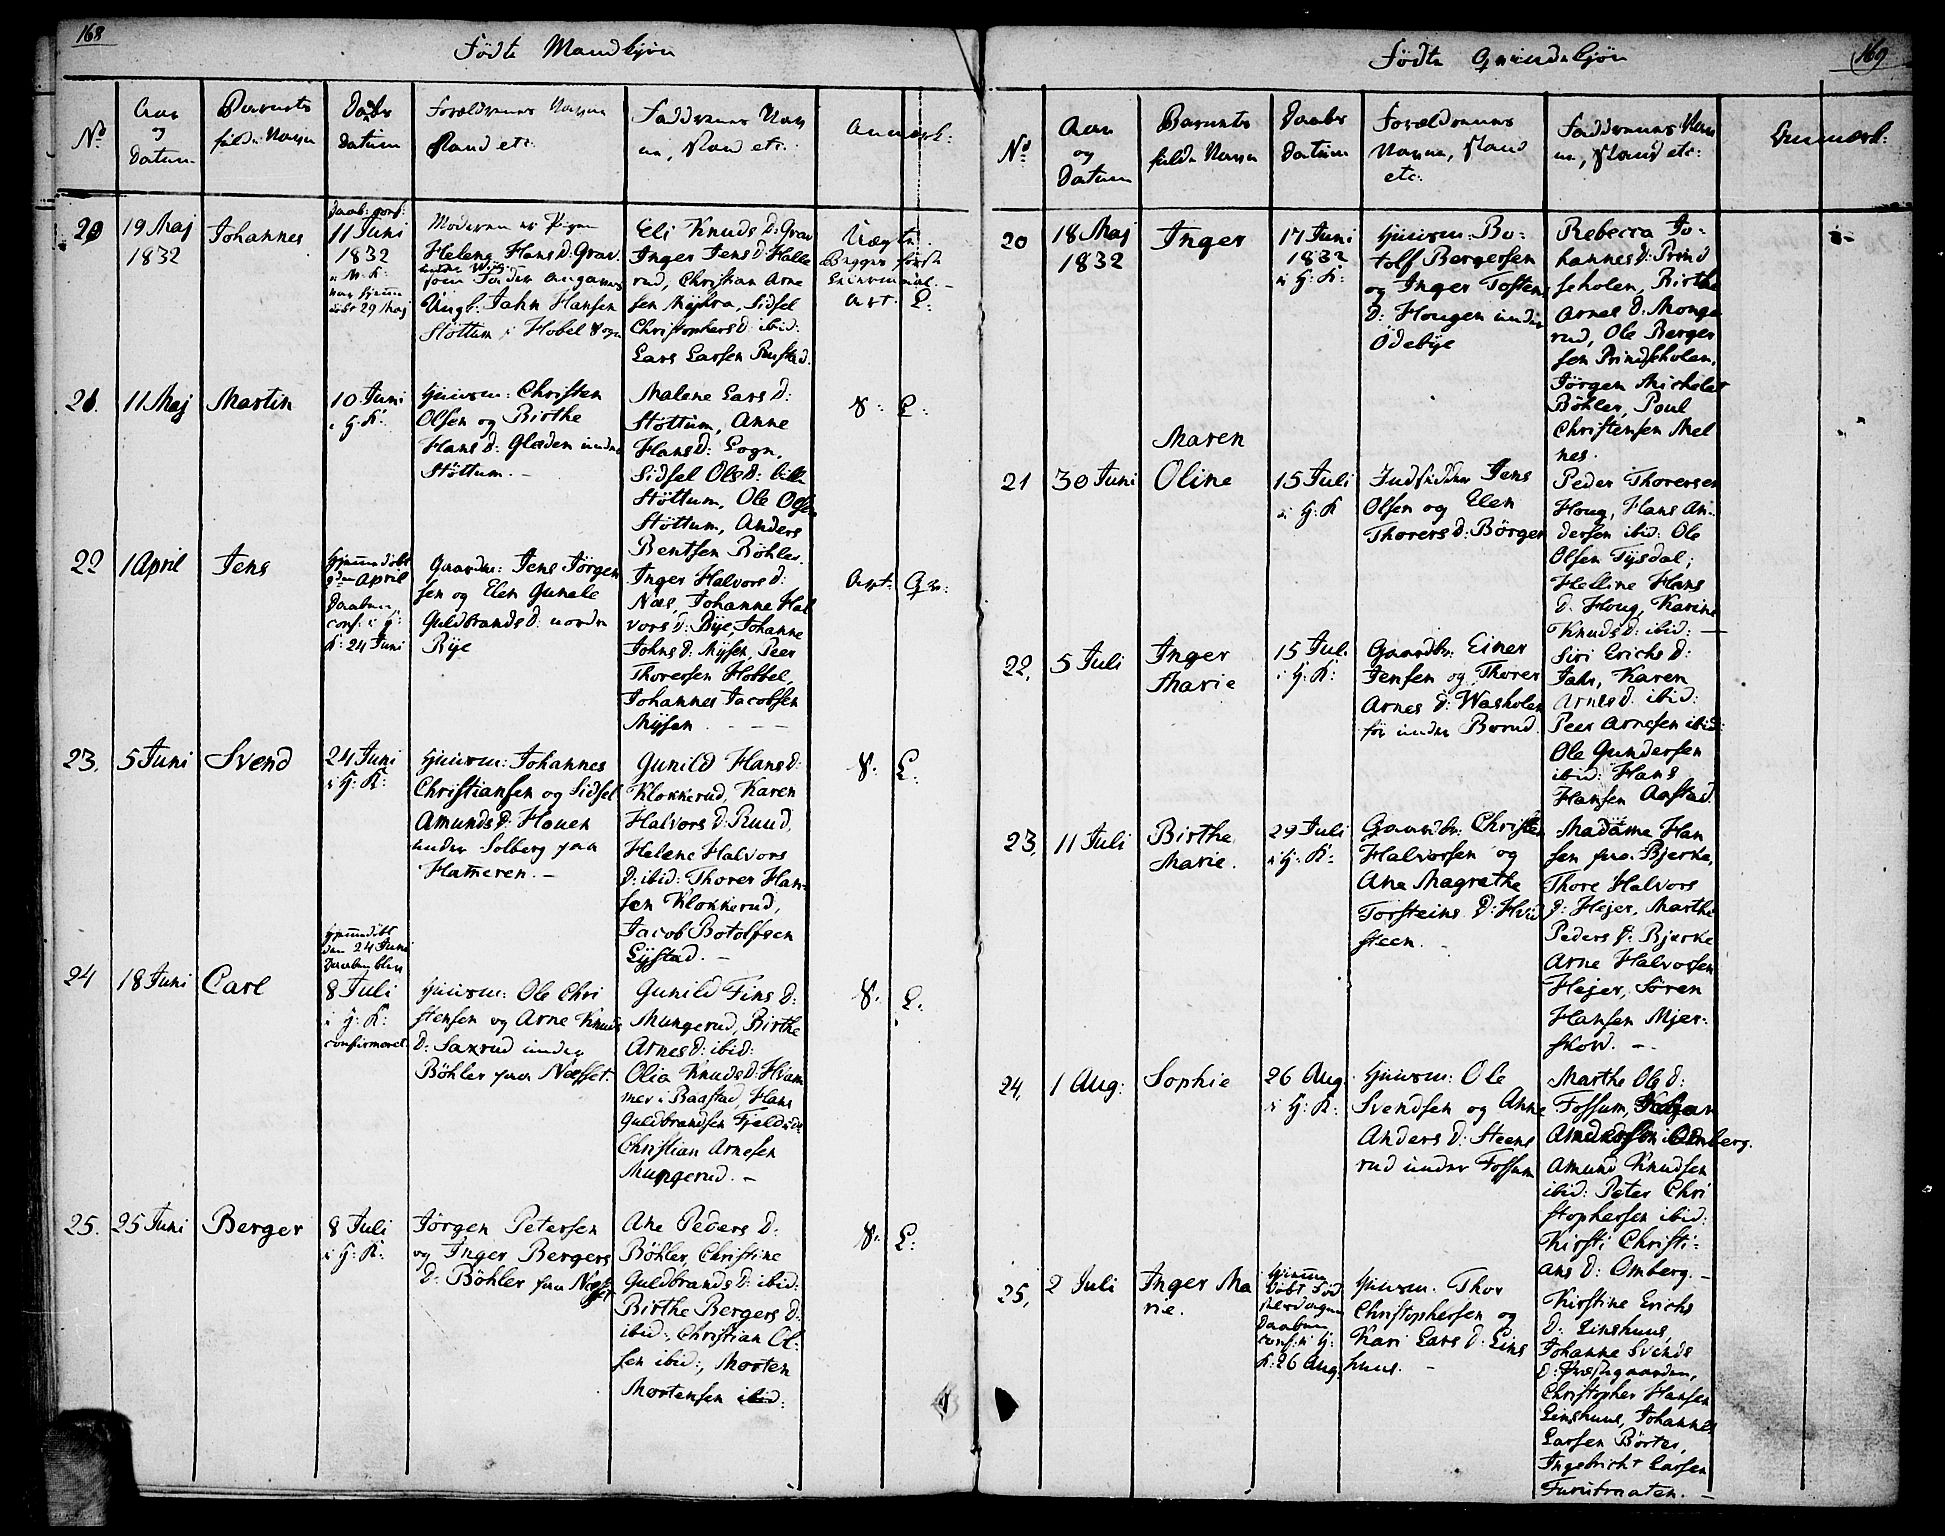 168
Födte Mandkjön
No
Aar
og
Datum
Barnets
fulde Navn
Daabs
Datum
Forældrenes Navne
Stand etc.
Faddernes Nav
ne, Stand etc.
Anmærk:
20
19 Maj
1832
Johannes
Daab: conf:
11 Juni
1832
i H: K:
döbt 29 Maj
Moderen er Pigen
Helene Hans D: Grav
som Fader angaves
Ungk: Jahn Hansen
Støttum i Hobel Sogn
Eli Knuds D: Grav
Inger Jens D: Halle
rud, Christian Arne
sen Mÿhra, Sidsel
Christophers D: ibid:
Lars Larsen Rustad.
Uægte.
Begges første
21.
11 Maj
Martin
10 Juni
i H: K:
Huusm: Christen
Olsen og Birthe
Hans D: Gladen under
Støttum. -
Malene Lars D:
Støttum, Anne
Hans D: Sogn,
Sidsel Ols D: lille
Støttum, Ole Olsen
Støttum, Anders
Bentsen Böhler.
22
1 April
Jens
Hjemmedöbt
9de April
Daaben
conf: i H:
K: 24 Juni
Gaardm: Jens Jörgen
sen og Elen Gunele
Guldbrands D: nordre
Rÿe
Inger Halvors D:
Næs, Johanne Hal
vors D: Rÿe, Johanne
Johns D: Mÿsen, Peer
Thoresen Hobbel,
Johannes Jacobsen
Mÿsen - - -
23.
5 Juni
Svend
24 Juni
i H: K:
Huusm: Johannes
Christiansen og Sidsel
Amunds D: Hauen
under Solberg paa
Hameren. -
Gunild Hans D:
Klokkerud, Karen
Halvors D: Ruud,
Helene Halvors
D: ibid: Thorer Han-
sen Klokkerud,
Jacob Botolfsen
Eÿstad. -
24
18 Juni
Carl
Hjemmedöbt
den 24 Juni
Daaben blev
8 Juli
i H: K:
confirmeret.
Huusm: Ole Chri
stensen og Arne Knuds
D: Saxrud under
Böhler paa Næsset.
Gunild Fins D:
Mungerud, Birthe
Arnes D: ibid:
Olia Knuds D: Hvam
mer i Baastad, Hans
Guldbrandsen Fjeld
Christian Arnesen
Mungerud. -
25.
25 Juni
Berger
8 Juli
i H: K:
Jörgen Petersen
og Inger Bergers
D: Böhler paa Næsset
Ane Peders D:
Böhler, Christine
Guldbrands D: ibid:
Birthe Bergers D:
ibid:, Christian Ol-
sen ibid:, Morten
Mortensen ibid:
169
Födte Qvindekjön
No
Aar
og
Datum
Barnets
fulde Navn
Daabs
Datum
Forældrenes
Navne, Stand
etc:
Faddernes Nav
ne, Stand etc:
Anmærk:
20
18 Maj
1832
Inger
17 Juni
1832
i H: K:
Huusm: Bo-
tolf Bergersen
og Inger Tostens
D: Hougen under
Ödebÿe
Rebecca Jo-
hannes D: Prind
seholen, Birthe
Arnes D: Monge
rud, Ole Berger
sen Prindseholen,
Jörgen Micholas
Böhler, Poul
Christensen Mel
nes.
21
30 Juni
Maren
Oline
15 Juli
i H: K
Indsidder Jens
Olsen og Elen
Thorers D: Börger
Peder Thorersen
Houg, Hans An-
dersen ibid: Ole
Olsen Tÿsdal;
Helline Hans
D: Houg, Karine
Knuds D: ibid: -
22,
5 Juli
Inger
Marie
15 Jul.
i H: K:
Gaardbr: Einer
Jensen og Thorer
Arnes D: Washolen
under Borud.
Siri Erichs D:
Jahr, Karen
Arnes D. ibid:
Peer Arnesen ibid:
Ole Gundersen
ibid: Hans
Hansen Aastad.
23,
11 Juli
Birthe
Marie.
29 Juli
i H: K:
Gaardbr: Christen
Halvorsen og
Ane Magrethe
Torsteins D: Hvid
steen. -
Madame Han
sen paa Bjerke,
Thore Halvors
D: Hejer, Marthe
Peders D: Bjerke
Arne Halvorsen
Hejer, Sören
Hansen Mjer-
skow. -
24,
1 Aug:
Sophie
26 Aug.
i H: K:
Huusm: Ole
Svendsen og Anne
Anders D: Steens
rud under Fossum
Marthe Ole D:
Fossum,
Amund Knudsen
ibid: Peter Chri
stophersen ibid:
Kirsti Christi-
ans D: Omberg. -
25,
2 Juli
Inger Ma
rie.
Hjemme
döbt Föd
selsdagen
Daaben
conf: i H:
K: 26 Aug:
Huusm: Thor
Christophersen og
Kari Lars D: Lins
huus. -
Kirstine Erichs
D: Linshuus,
Johanne Svends
D: Præstegaarden,
Christopher Hansen
Linshuus, Johannes
Larsen Börter,
Ingebricht Larsen
Furubraaten. -